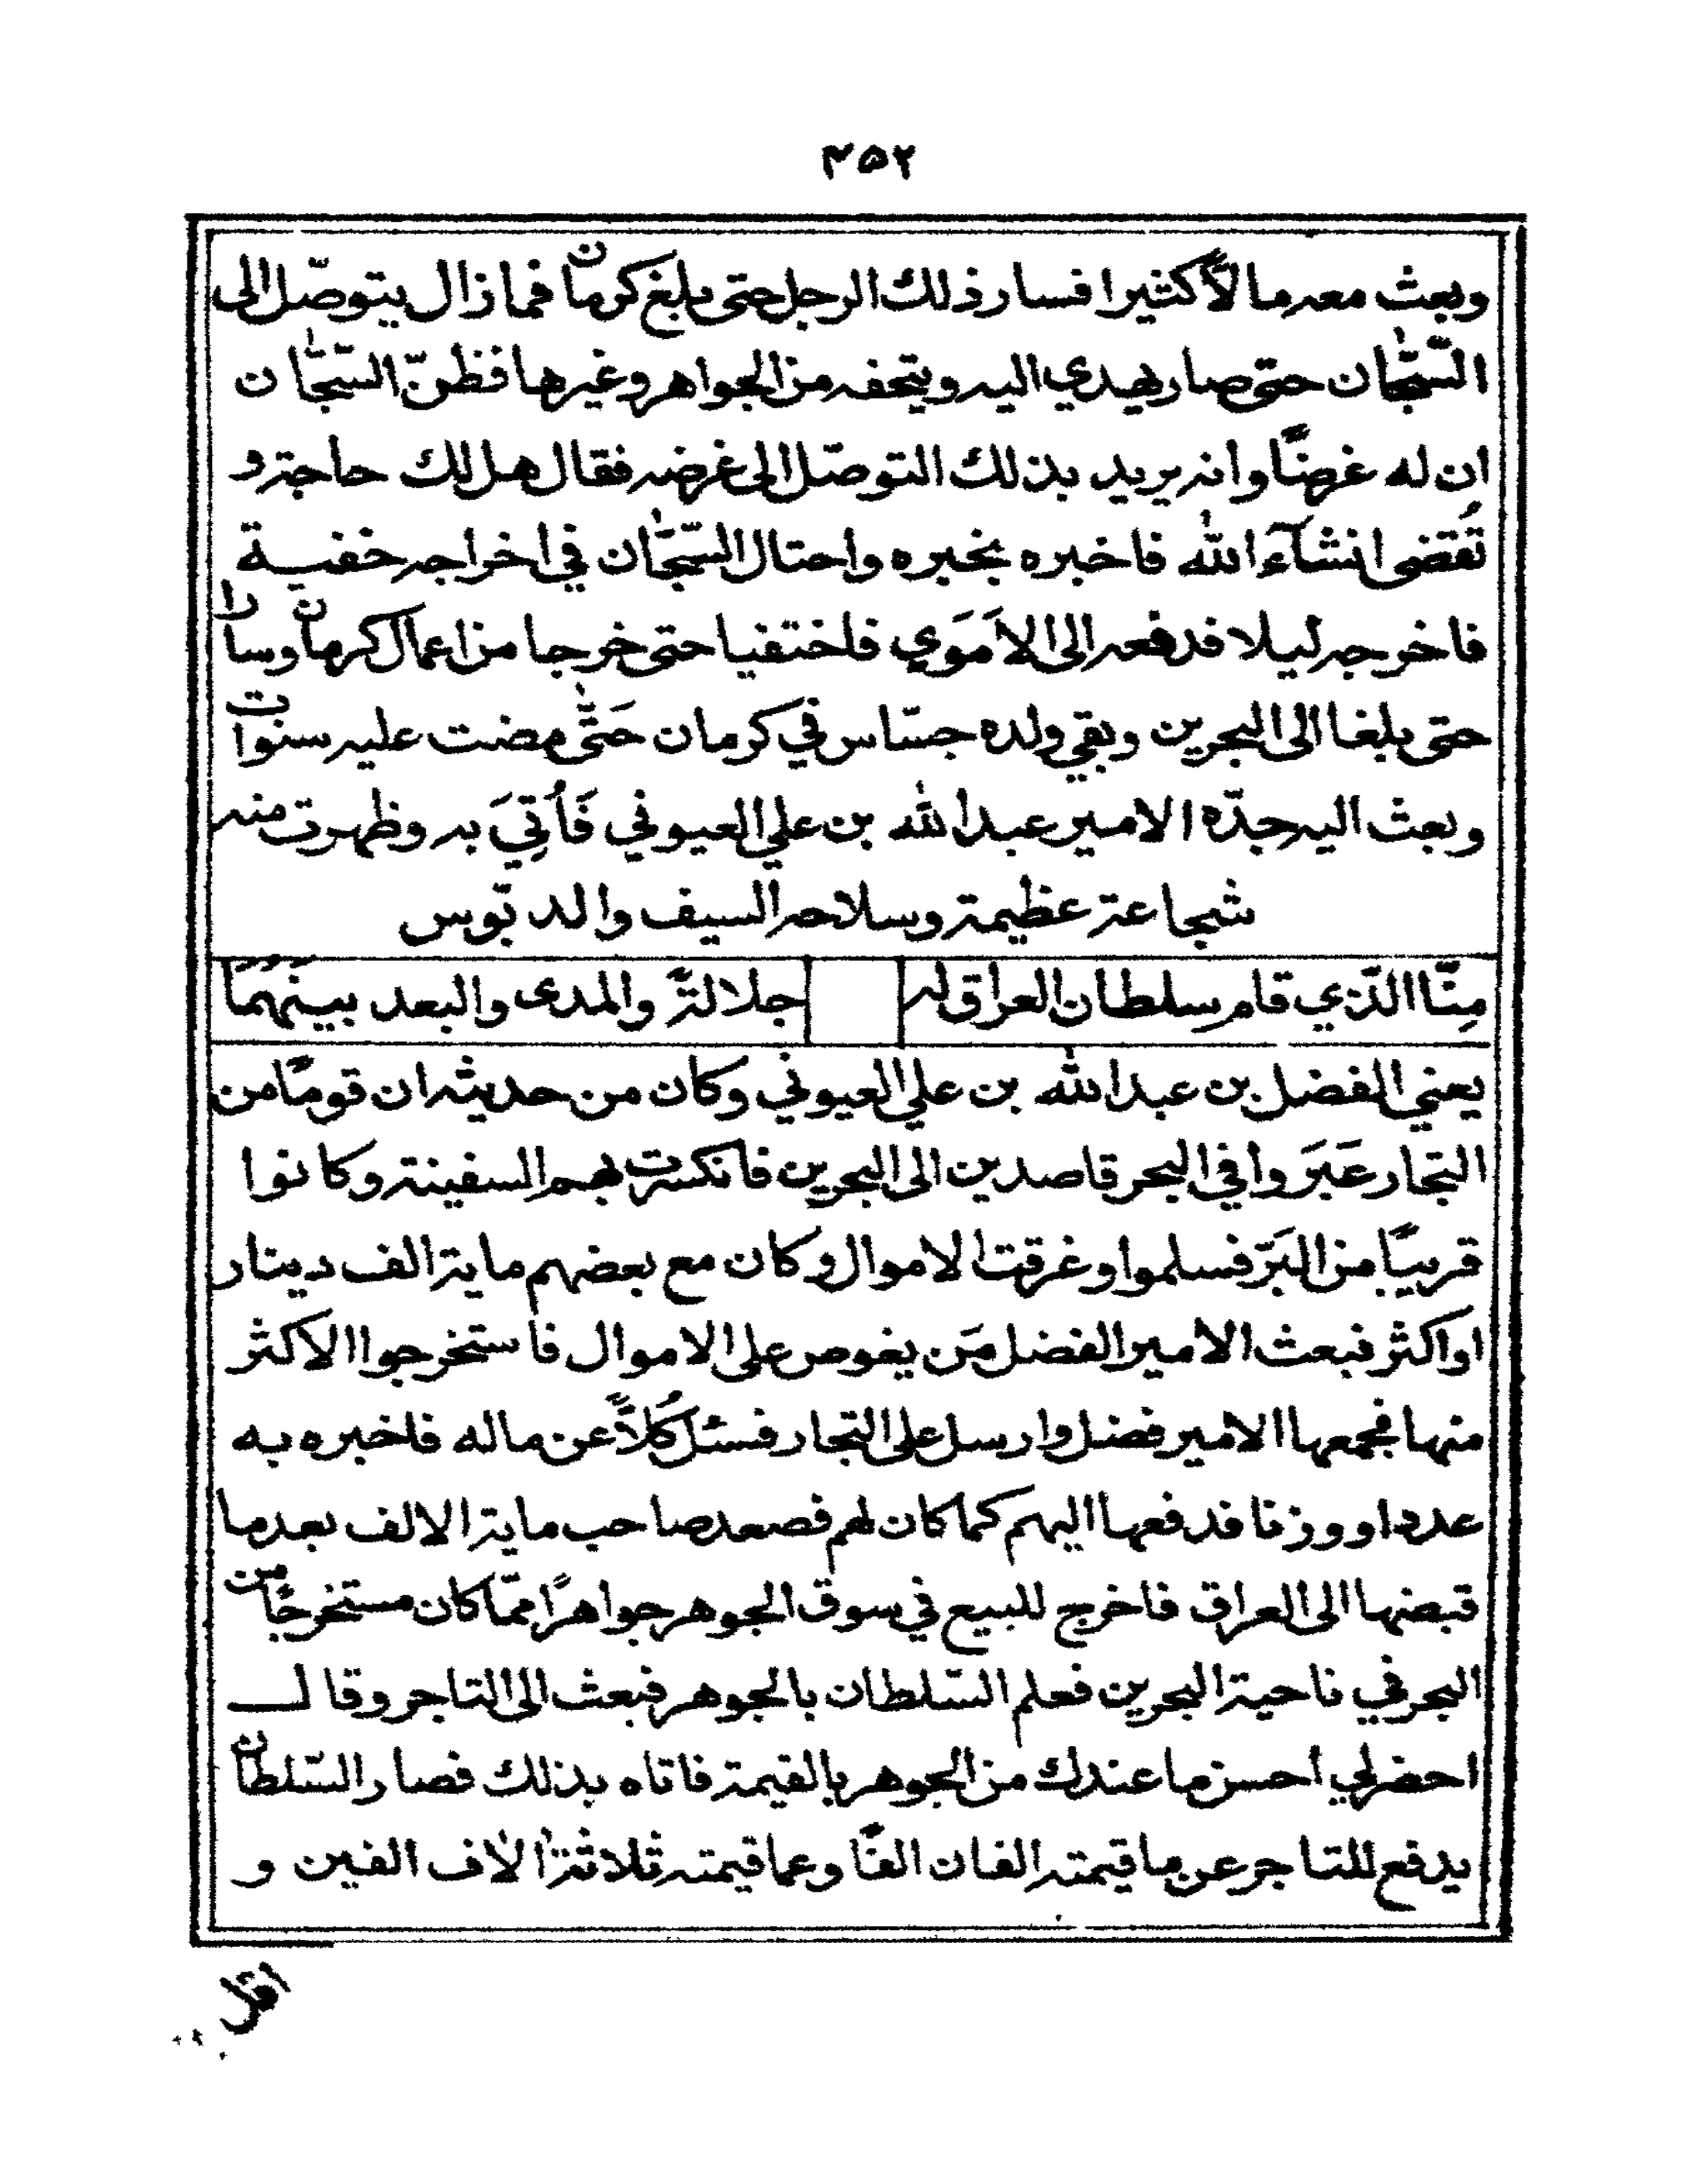 ٤٥٢
وبعث معه مالاً كثيرا فسار ذلك الرجل حتى بلغ كرمان فما زال يتوصّل الى
السّجّان حتى صار يهدي اليه ويتحفه من الجواهر وغيرها فظنّ السّجّان
ان له غرضًا وانه يريد بذلك التوصّل الى غرضه فقال هل لك حاجة و
تُقضى انشآء الله فاخبره بخبره واحتال السّجّان في اخراجه خفية
فاخرجه ليلا فدفعه الى الاَمَوي فاختفيا حتى خرجا من اعمال كرمان وسارا
حتى بلغا الى البحرين وبقي ولده جسّاس في كرمان حَتّى مضت عليه سنوات
وبعث اليه جدّه الامير عبدالله بن علي العيوني فَأُتِيَ به وظهرت منه
شجاعة عظيمة وسلاحه السيف والدبّوس
مِنّا الّذي قام سلطان العراق له جلالةً والمدى والبعد بينهُمَا
يعني الفضل بن عبدالله بن علي العيوني وكان من حديثه ان قومًا من
التجار عَبَرَوا في البحر قاصدين الى البحرين فانكسرت بهم السفينة وكانوا
قريبًا من البَرّ فسلموا وغرقت الاموال وكان مع بعضهم ماية الف دينار
او اكثر فبعث الامير الفضل مَن يغوص على الاموال فاستخرجوا الاكثر
منها فجمعها الامير فضل وارسل على التجار فسئل كُلاًّ عن ماله فاخبره به
عددا ووزنا فدفعها اليهم كما كان لهم فصعد صاحب ماية الالف بعد ما
قبضها الى العراق فاخرج للبيع في سوق الجوهر جواهرًا ممّا كان مستخرجًا من
البحر في ناحية البحرين فعلم السّلطان بالجوهر فبعث الى التاجر وقال
احضر لي احسن ما عندك من الجوهر بالقيمة فاتاه بذلك فصار السّلطان
يدفع للتاجر عن ما قيمته الفان الفًا وعما قيمته ثلاثة الاف الفين و
اقل